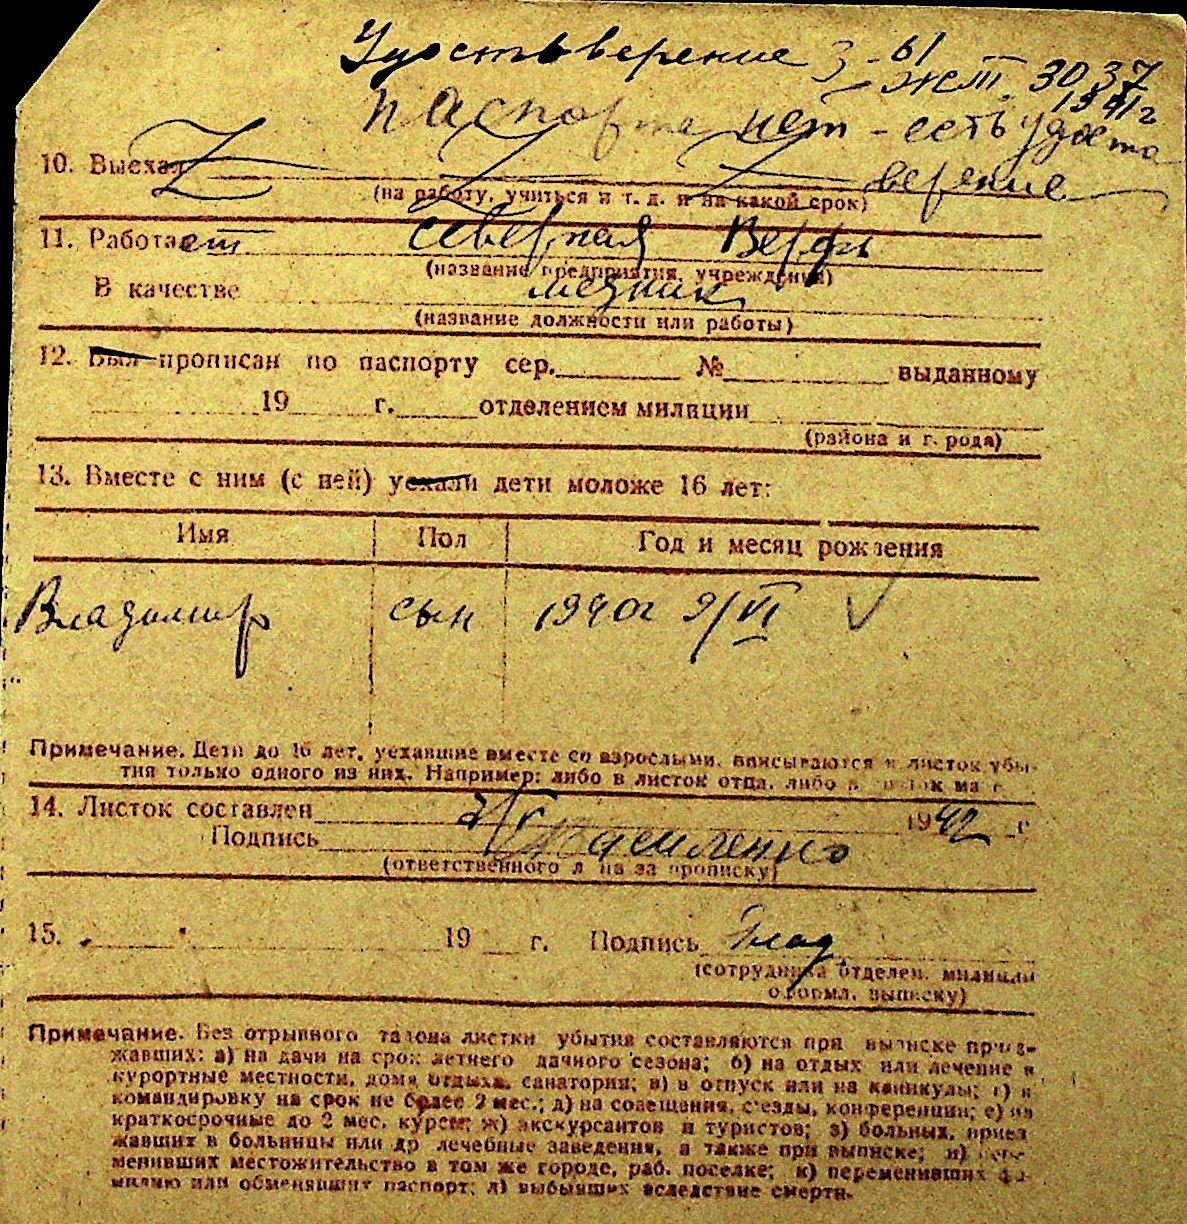 Удостьверение 3-61
жт. 3037
1941г
паспорта нет - есть удосто
верение
10. Выехал
(на работу, учиться и т. д. и на какой срок)
11. Работает северная Верфь
(название предприятия, учреждения)
В качестве медник
(название должности или работы)
12. Был прописан по паспорту сер. № выданному
19 г. отделением милиции
(района и города)
13. Вместе с ним (с ней) уехали дети моложе 16 лет:
Имя Пол Год и месяц рождения
Владимир сын 1940г 9/VI
Примечание. Дети до 16 лет, уехавшие вместе со взрослыми, вписываются в листок убы-
тия только одного из них. Например: либо в листок отца, либо в листок ма
14. Листок составлен 1942 г
Подпись Василенко
(ответственного л на за прописку)
15. 19 г. Подпись
(сотрудника отделен. милиции
оформл. выписку)
Примечание. Без отрывного талона листки убытия составляются при выписке приез-
жавших: а) на дачи на срок летнего дачного сезона; б) на отдых или лечение в
курортные местности, дома отдыха, санатории; в) в отпуск или на каникулы; г) в
командировку на срок не более 2 мес.; д) на совещания, с'езды, конференции; е) на
краткосрочные до 2 мес. курсы; ж) экскурсантов и туристов; з) больных, приез
жавших в больницы или др лечебные заведения, а также при выписке; и) пере-
менивших местожительство в том же городе, раб. поселке; к) переменивших фа-
милию или обменявших паспорт; л) выбывших вследствие смерти.